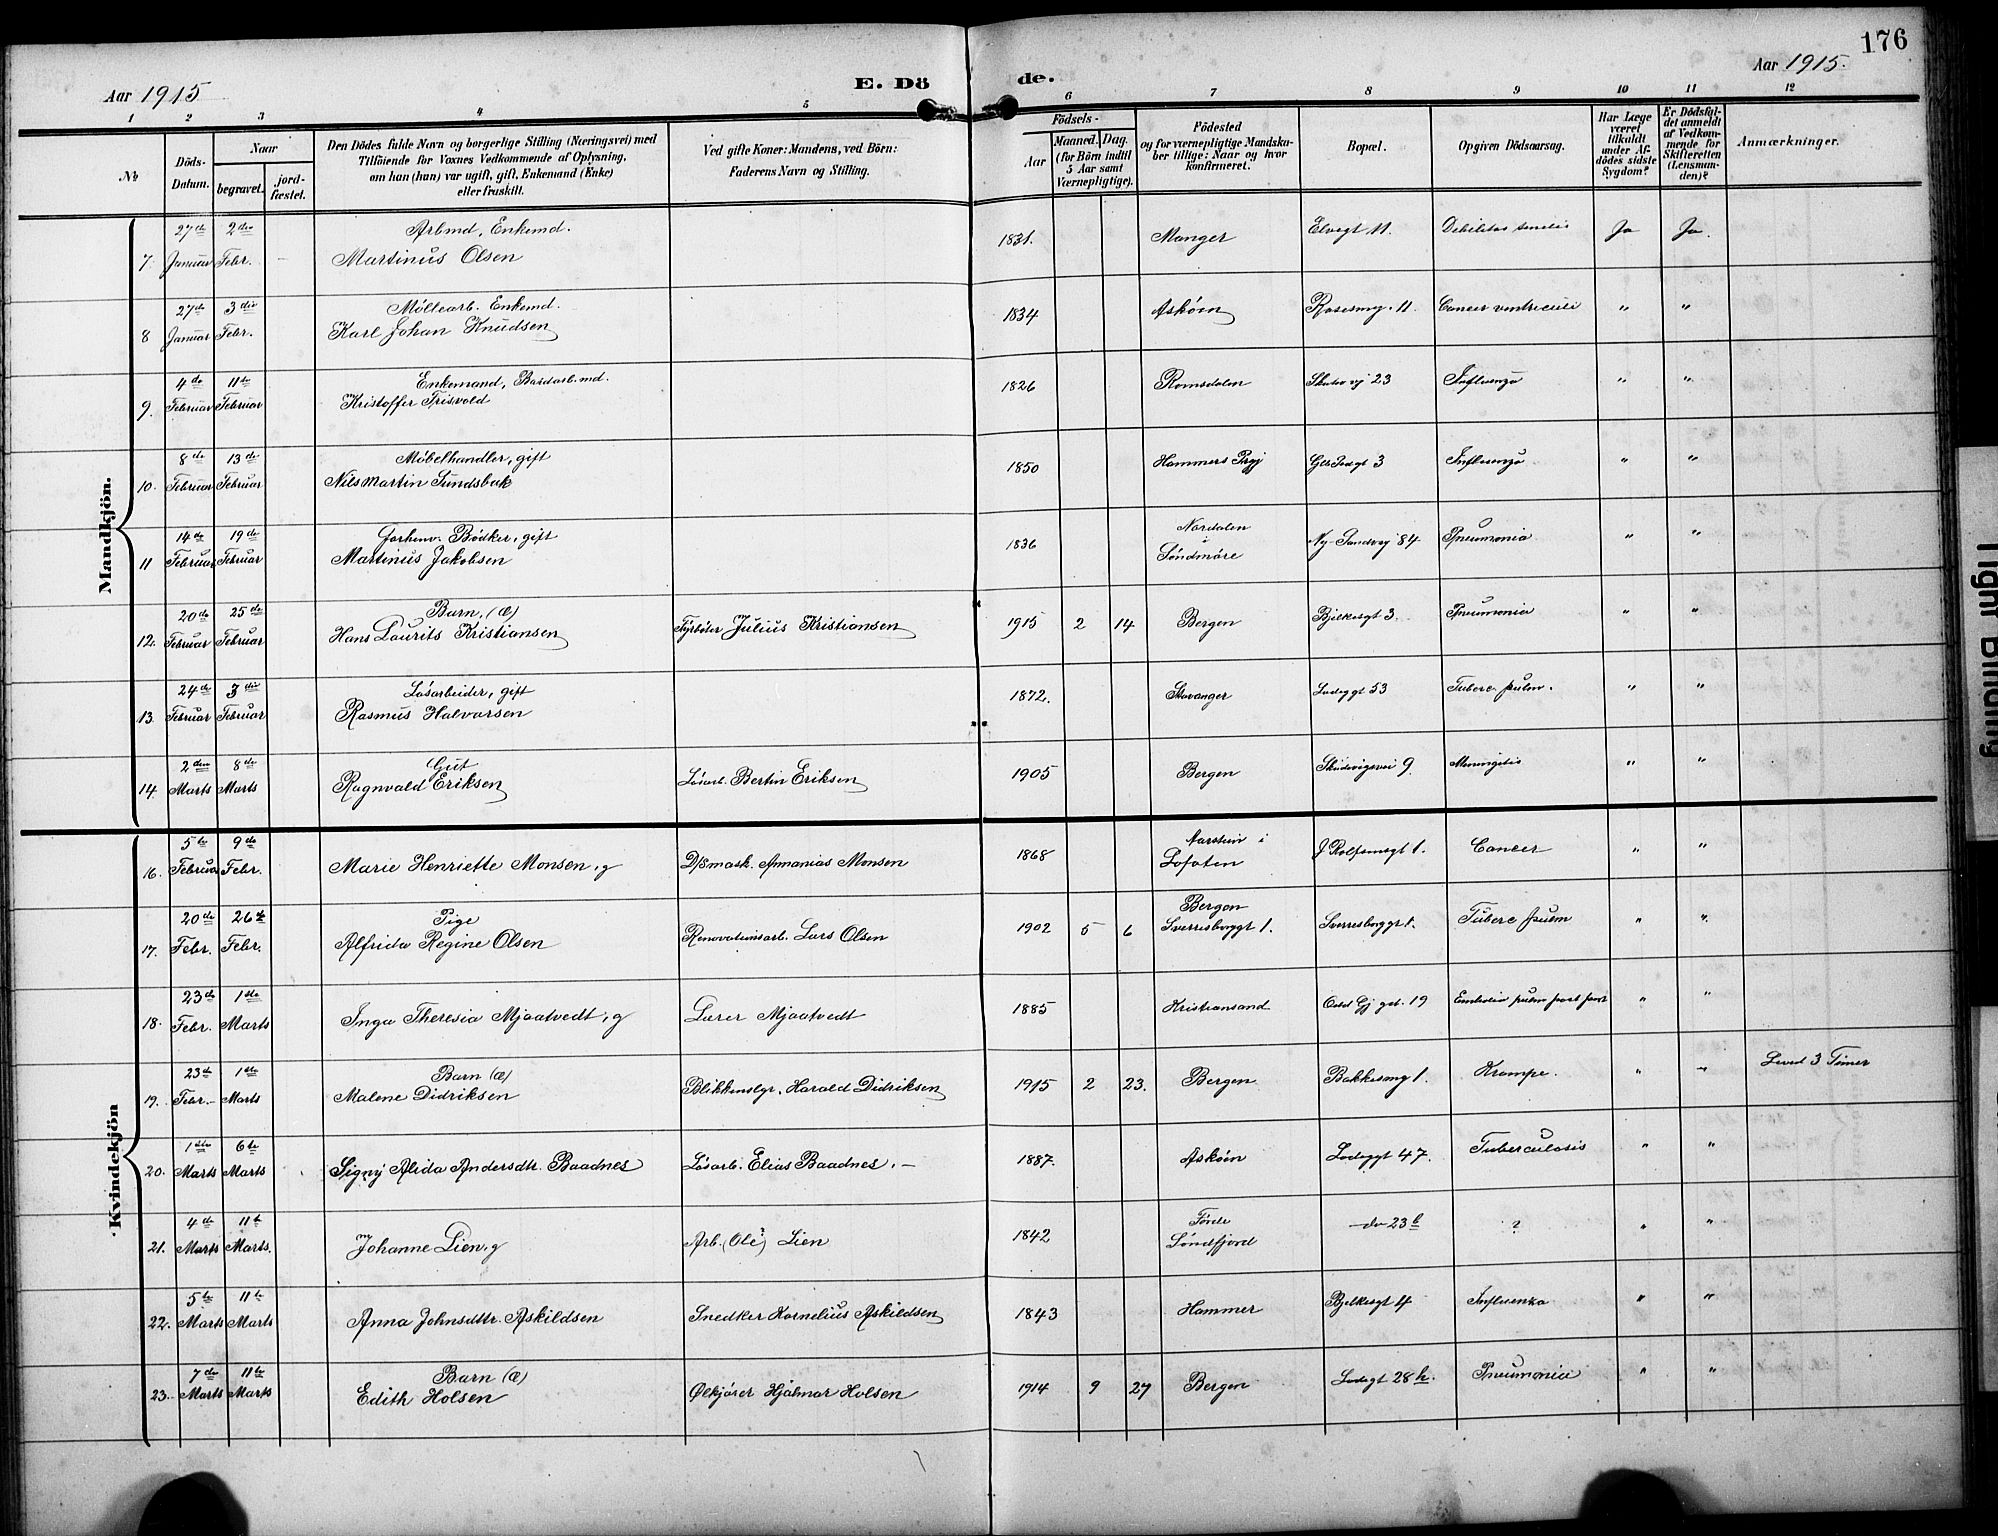 176
Aar 1915
E. Dö de.
Aar 1915.
1 2 3 4 5 6 7 8 9 10 11 12
No
Döds-Datum.
Naar
begravet.
jord-fæstet.
Den Dödes fulde Navn og borgerlige Stilling (Næringsvei) med
Tilföiende for Voxnes Vedkommende af Oplysning,
om han (hun) var ugift, gift, Enkemand (Enke)
eller fraskilt.
Ved gifte Koner: Mandens, ved Börn:
Faderens Navn og Stilling.
Födsels-
Aar
Maaned. Dag.
(for Börn indtil
5 Aar samt
Værnepligtige).
Födested
og for værnepligtige Mandska-
ber tillige: Naar og hvor
konfirmeret.
Bopæl.
Opgiven Dödsaarsag.
Har Læge
været
tilkaldt
under Af-
dödes sidste
Sygdom?
Er Dödsfal-
det anmeldt
af Vedkom-
mende for
Skifteretten
(Lensman-
den)?
Anmærkninger.
Mandkjön.
27de 2den Arbmd, Enkemd.
7. Januar Febr. - Martinus Olsen 1831. Manger Elvegt 11. Debilitas senilis Ja Ja.
27de 3die Mölleárb. Enkemd.
8 Januar Febr. Karl Johan Knudsen 1834 Askøen Rosesmg. 11. Cancer ventriculi " "
4de 11te Enkemand,
9. Februar Februar Kristoffer 1826 Romsdalen 23 Influenza " "
8de 13de Møbelhandler, gift
10. Februar Februar Nils Martin Sundsbak 1850 Hammers Prgj 3 Influenza " "
14de 19de Forhenv. Bødker, gift
11 Februar Februar Martinus Jakobsen 1836 Nordalen i Søndmøre Ny-Sandvej 84 Pneumonia " "
20de 25de Barn, (æ)
12. Februar Februar Hans Laurits Kristiansen Fyrbøter Julius Kristiansen 1915 2 14 Bergen Bjelkesgt 3. Pneumonia " "
24de 3die Løsarbeider, gift
13. Februar Februar Rasmus Halvorsen 1872. Stavanger Ladeggt 53 Tuberc. pulm. " "
2den 8de Gut
14. Marts Marts Ragnvald Eriksen Løsarb. Bertin Eriksen 1905 Bergen Skudevigsvei 9. Meningitis " "
Kvindekjön
5te 9de
16. Februar Febr. Marie Henriette Monsen, g D/Smask. Annanias Monsen 1868 i Lofoten J Rolfsensgt 1. Cancer " "
20de 26de Pige
17. Febr. Febr. Alfrida Regine Olsen Renovationsarb. Lars Olsen 1902 5 6 Bergen Sverresborggt 1. Sverresborggt 1. Tuberc pulm " "
23de 1ste
18. Febr. Marts Inga Theresia Mjaatvedt, g Lærer Mjaatvedt 1885 Kristiansand 19 Embolia pulm post part " "
23de 1ste Barn (æ)
19. Febr. Marts Malene Didriksen Blikkenslgr. Harald Didriksen 1915 2 23. Bergen Bakkesmg 1. Krampe. " " Leved 3 Timer
1ste 6te
20. Marts Marts Signy Alida Andersdtr. Baadnes Løsarb. Elias Baadnes. - 1887. Askøen Ladeggt 47. Tuberculosis " "
4de 11te
21. Marts Marts. Johanne Lien, g Arb. (Ole?) Lien 1842 Førde Søndfjord -do- 23b ? " "
5te 11te
22. Marts Marts Anna Johnsdttr. Askildsen Snedker Kornelius Askildsen 1843 Hammer Bjelkesgt 4 Influenza " "
7de 11te Barn (æ)
23. Marts Marts Edith Holsen Ølkjører Hjalmar Holsen 1914 9 27 Bergen Ladegt 28 b. Pneumonia " "
Tight Binding